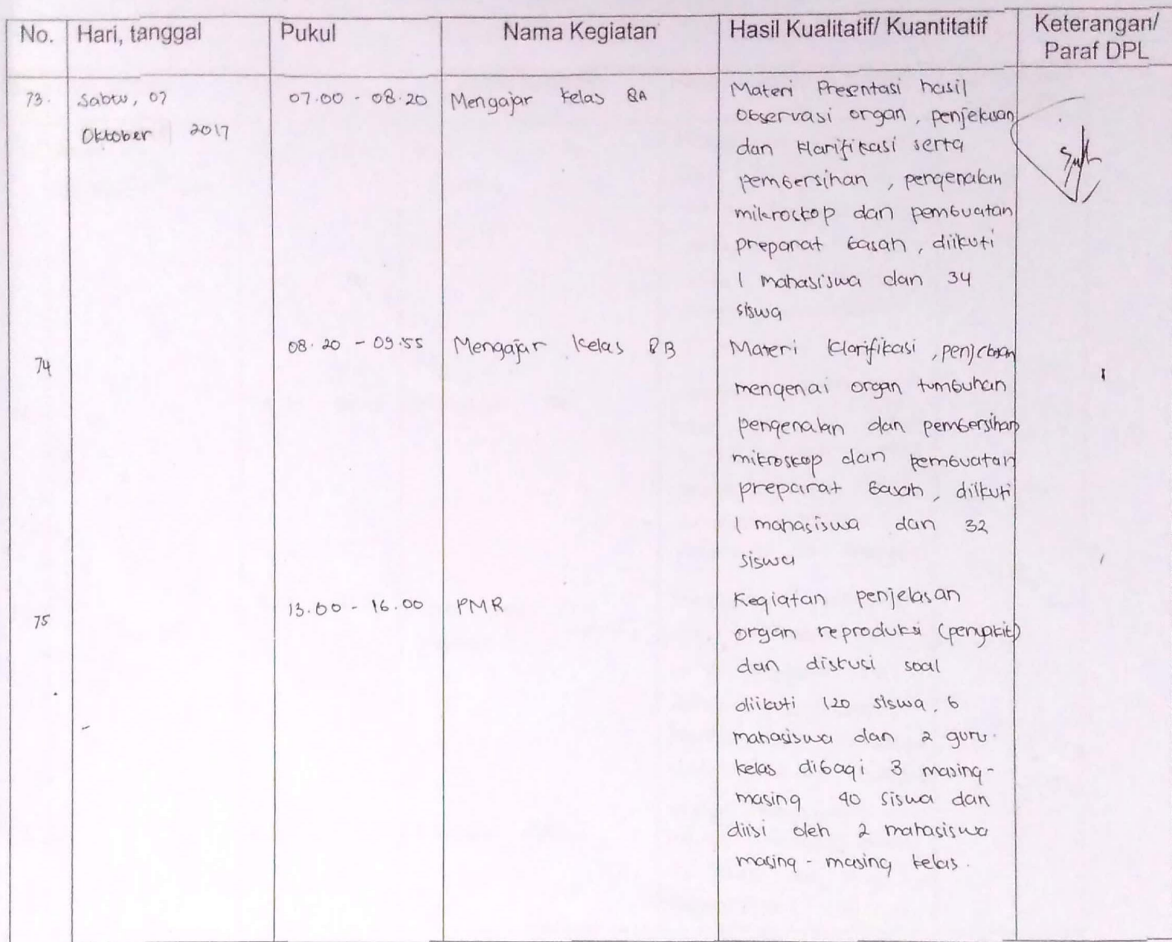 No. Hari, tanggal Pukul Nama Kegiatan Hasil Kualitatif/ Kuantitatif Keterangan/
Paraf DPL
73. Sabtu, 07 07.00 - 08.20 Mengajar kelas 8A Materi Presentasi hasil
Oktober 2017 observasi organ, penjelasan
dan klarifikasi serta
pembersihan, pengenalan
mikroskop dan pembuatan
preparat basah, diikuti
1 mahasiswa dan 34
siswa
74 08.20 - 09.55 Mengajar kelas 8B Materi klarifikasi, penjelasan
mengenai organ tumbuhan
pengenalan dan pembersihan
mikroskop dan pembuatan
preparat basah, diikuti
1 mahasiswa dan 32
siswa
75 13.00 - 16.00 PMR Kegiatan penjelasan
organ reproduksi (penyakit)
dan diskusi soal
diikuti 120 siswa, 6
mahasiswa dan 2 guru.
kelas dibagi 3 masing-
masing 40 siswa dan
diisi oleh 2 mahasiswa
masing - masing kelas.